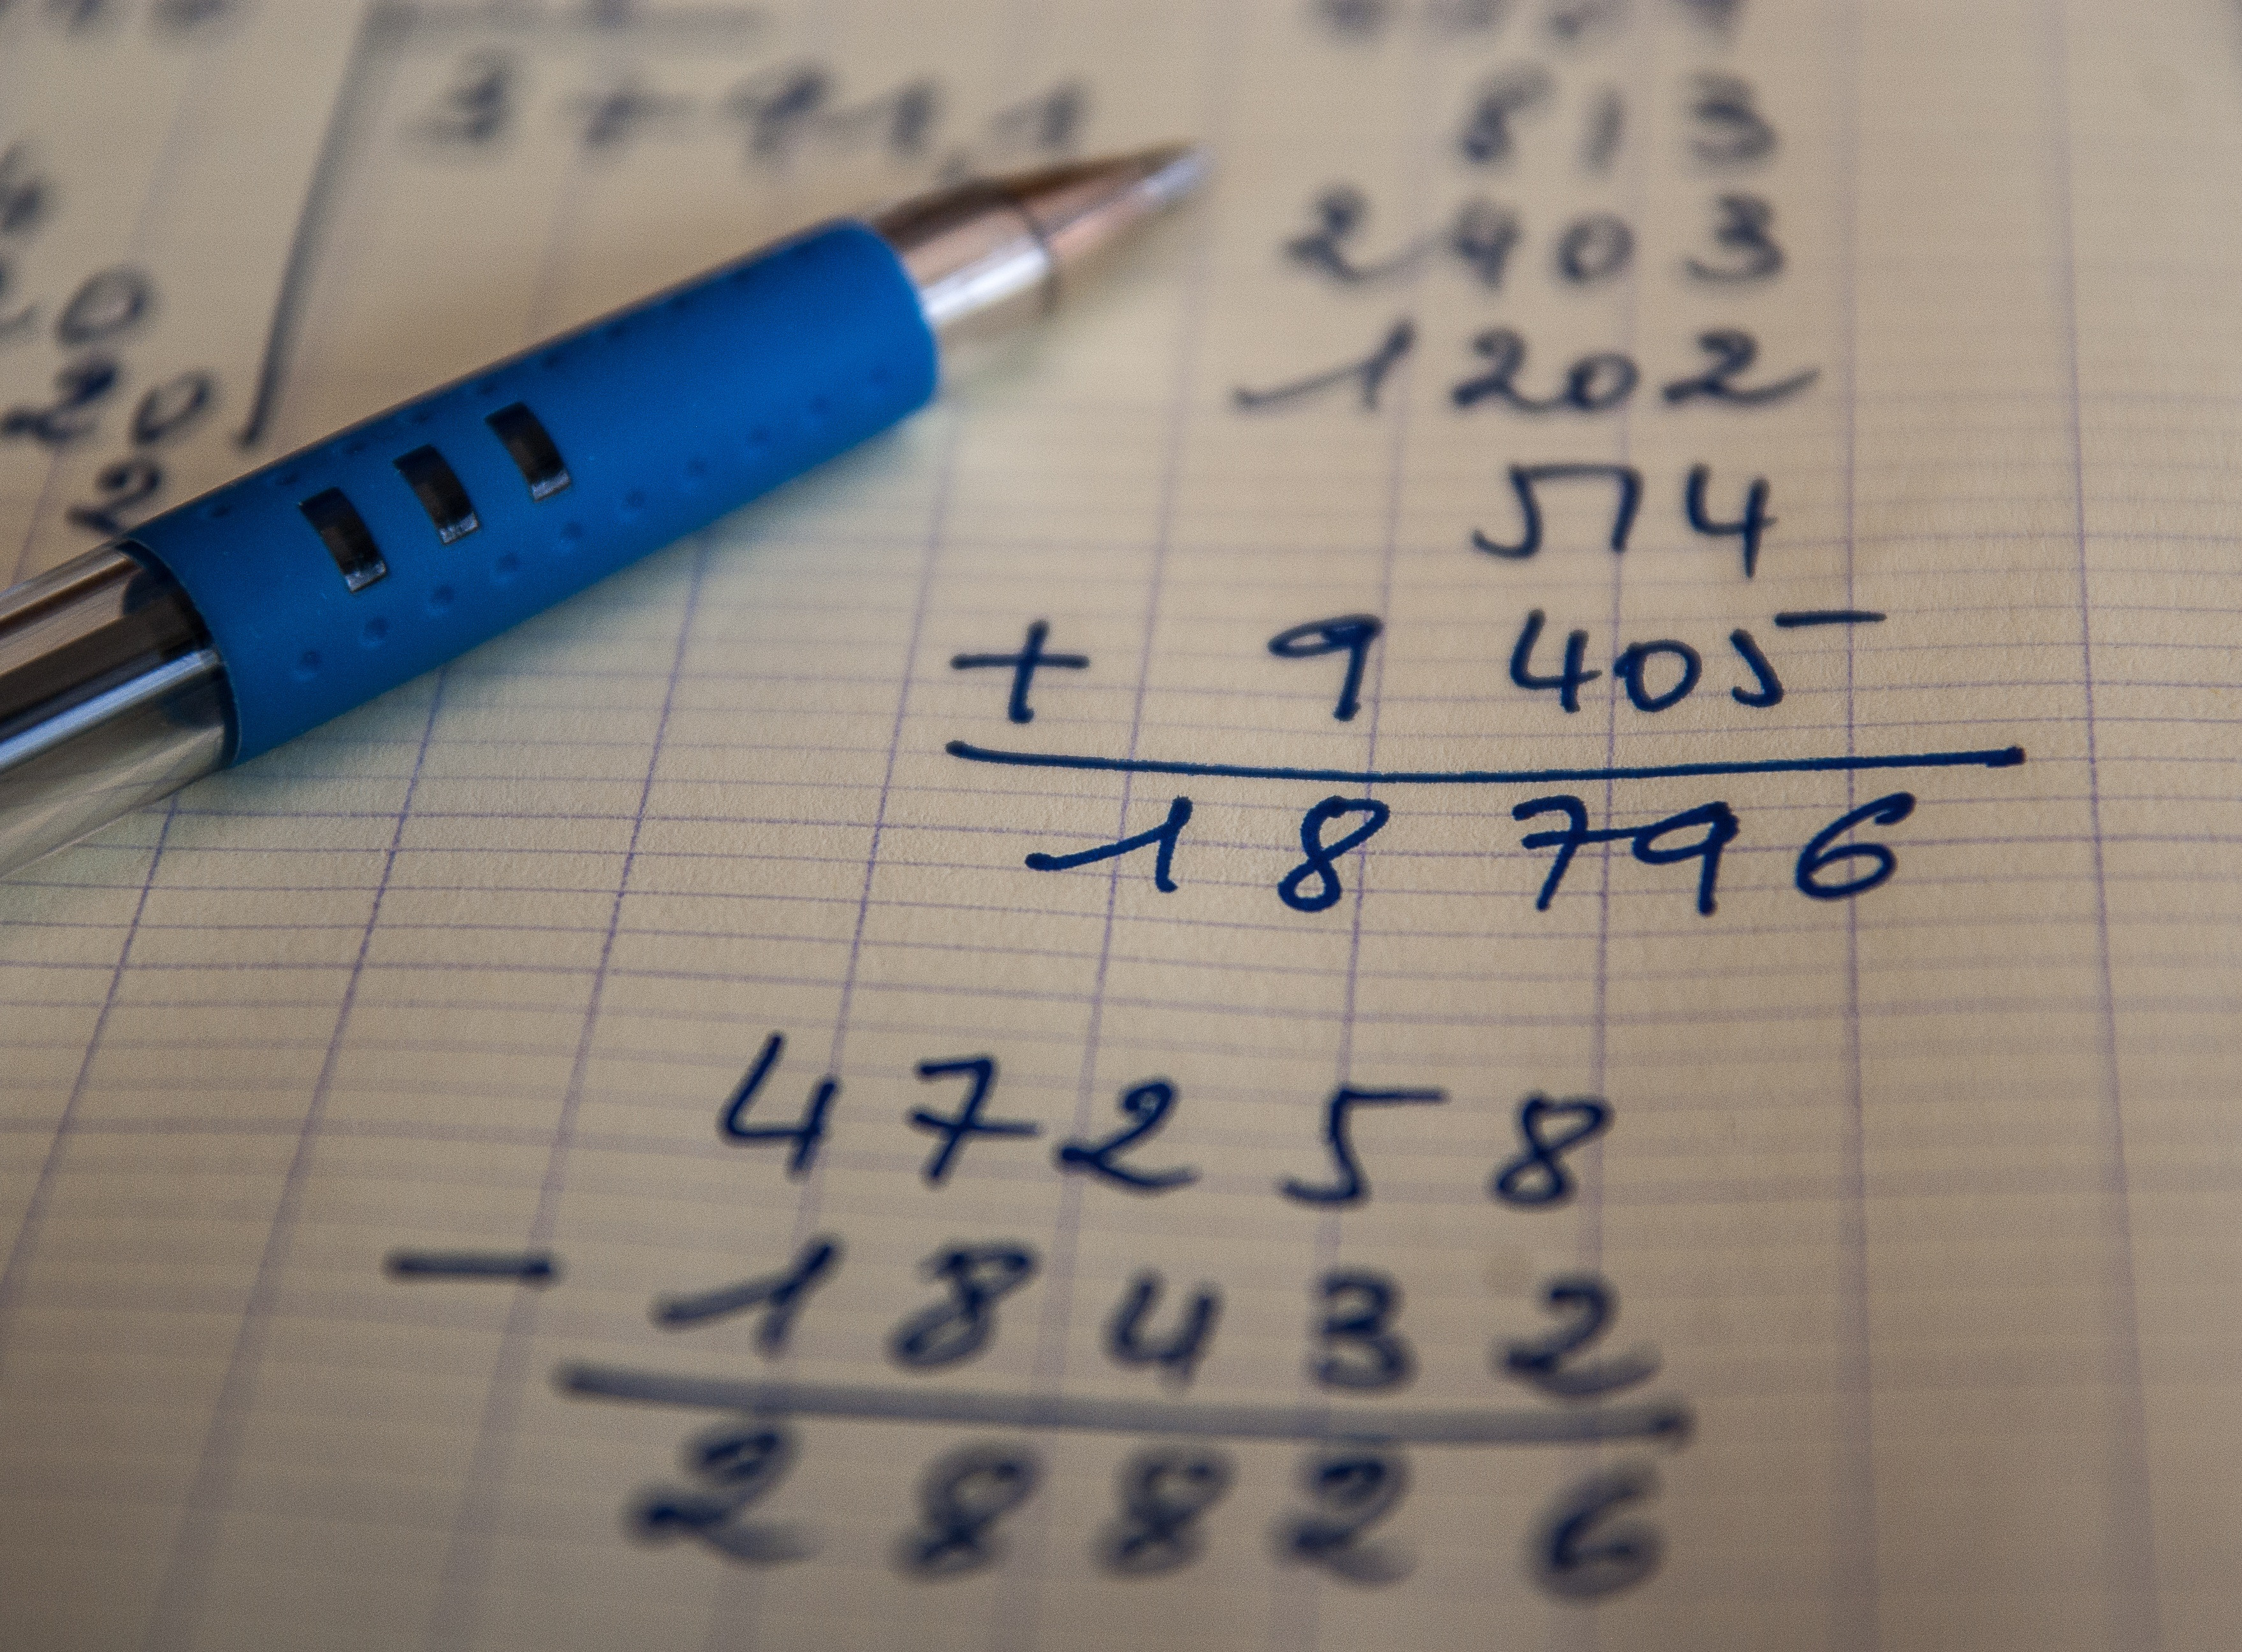 813
2403
1202
20
514
2
+ 9 405
18 796
47258
- 18432
28826